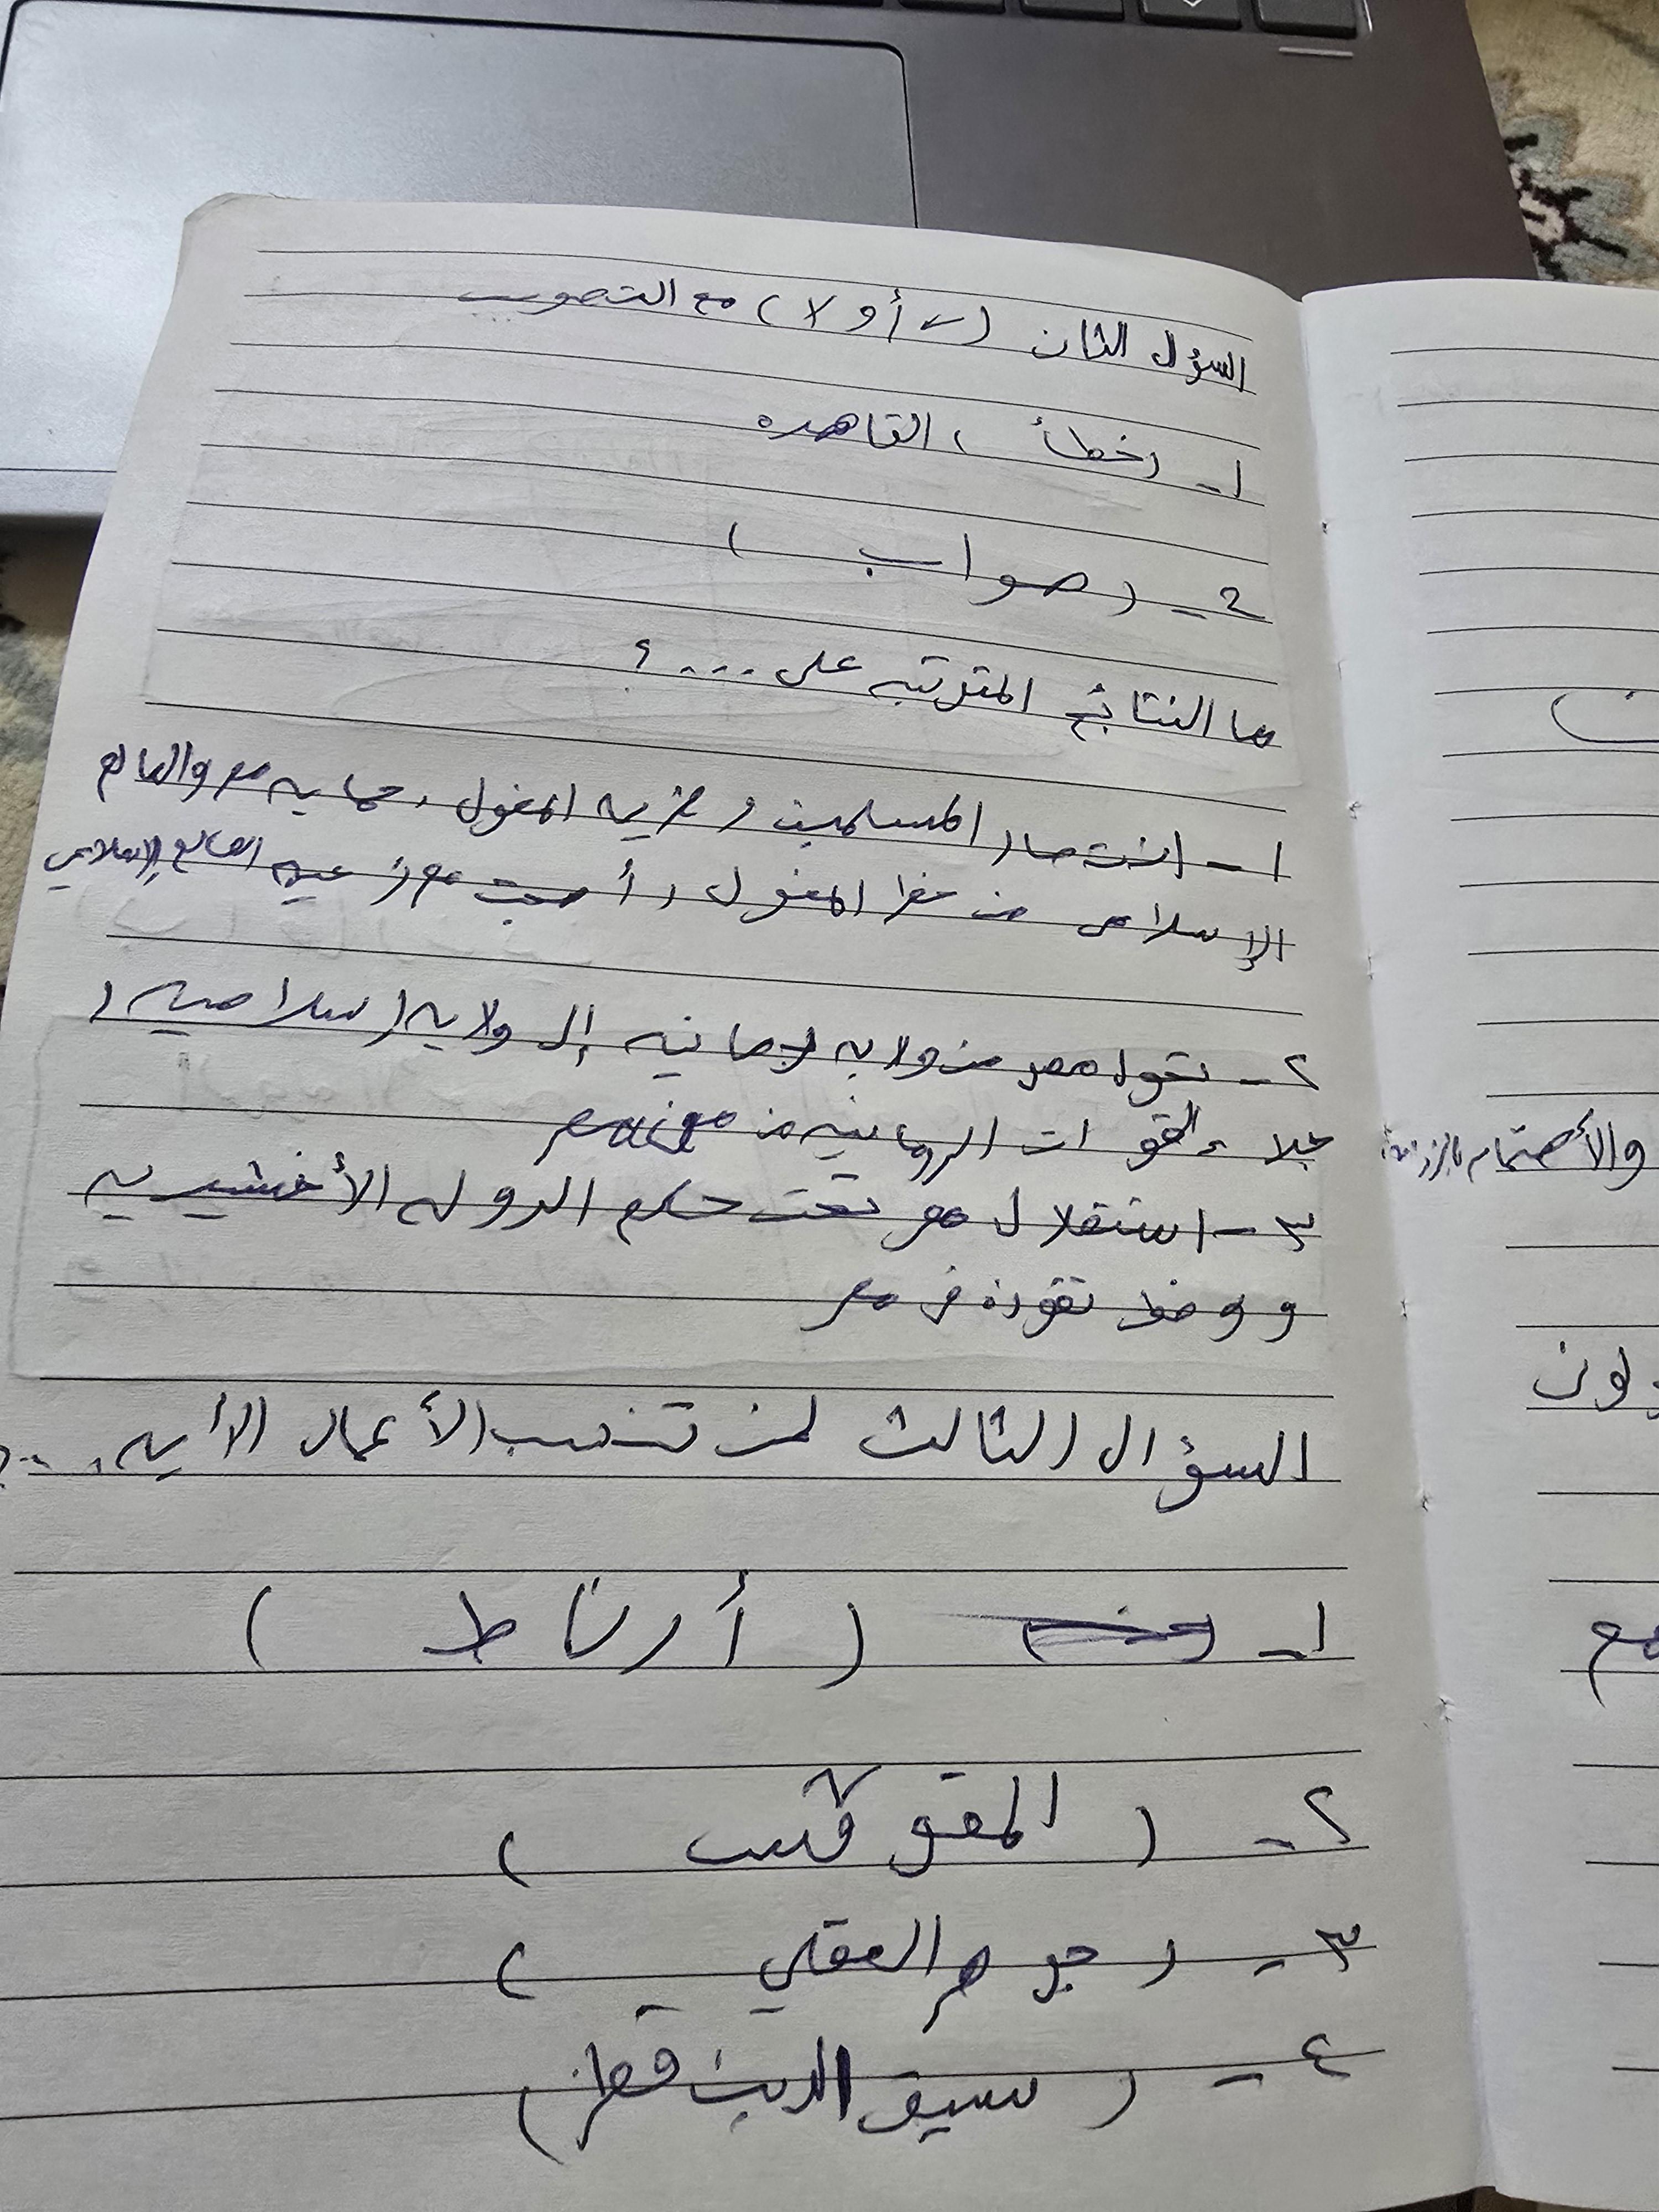 السؤال الثان (✓ أو لا) مع التصويب
1- (خطأ) القاهره
2- (صواب)
ما النتائج المترتبه على ....؟
1- انتصار المسلمين وهزيه المغول , حمايه مصر والعالم
الإسلامى من خطر المغول , أصبحت مصر زعيمه العالم الإسلامي
٢- تحول مصر من ولايه رومانيه إلى ولايه إسلاميه ,
جلاء القوات الرومانيه من مصر
٣- استقلال مصر تحت حكم الدوله الأخشيديه
نفوذه فى مصر
السؤال الثالث لمن تنسب الأعمال الأتيه ....؟
1- (أرناط)
٢- (المقوقس)
٣- (جوهر الصقلي)
٤- (سيف الدين قطز)
والأهتمام بالزراعه
لون
مع